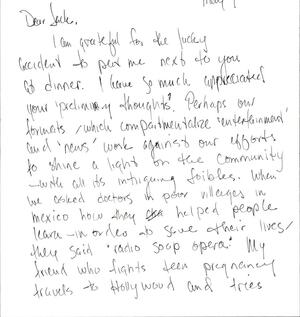 May
Dear Jack,
I am grateful for the lucky
accident to put me next to you
at dinner. I have so much appreciated
your "preliminary thoughts". Perhaps our
formats, which compartmentalize "entertainment"
and "news" work against our efforts
to shine a light on the community
- with all its intriguing foibles. When
we asked doctors in poor villages in
mexico how they helped people
learn - in order to save their lives,
they said "radio soap opera." My
friend who fights teen pregnancy
travels to Hollywood and tries